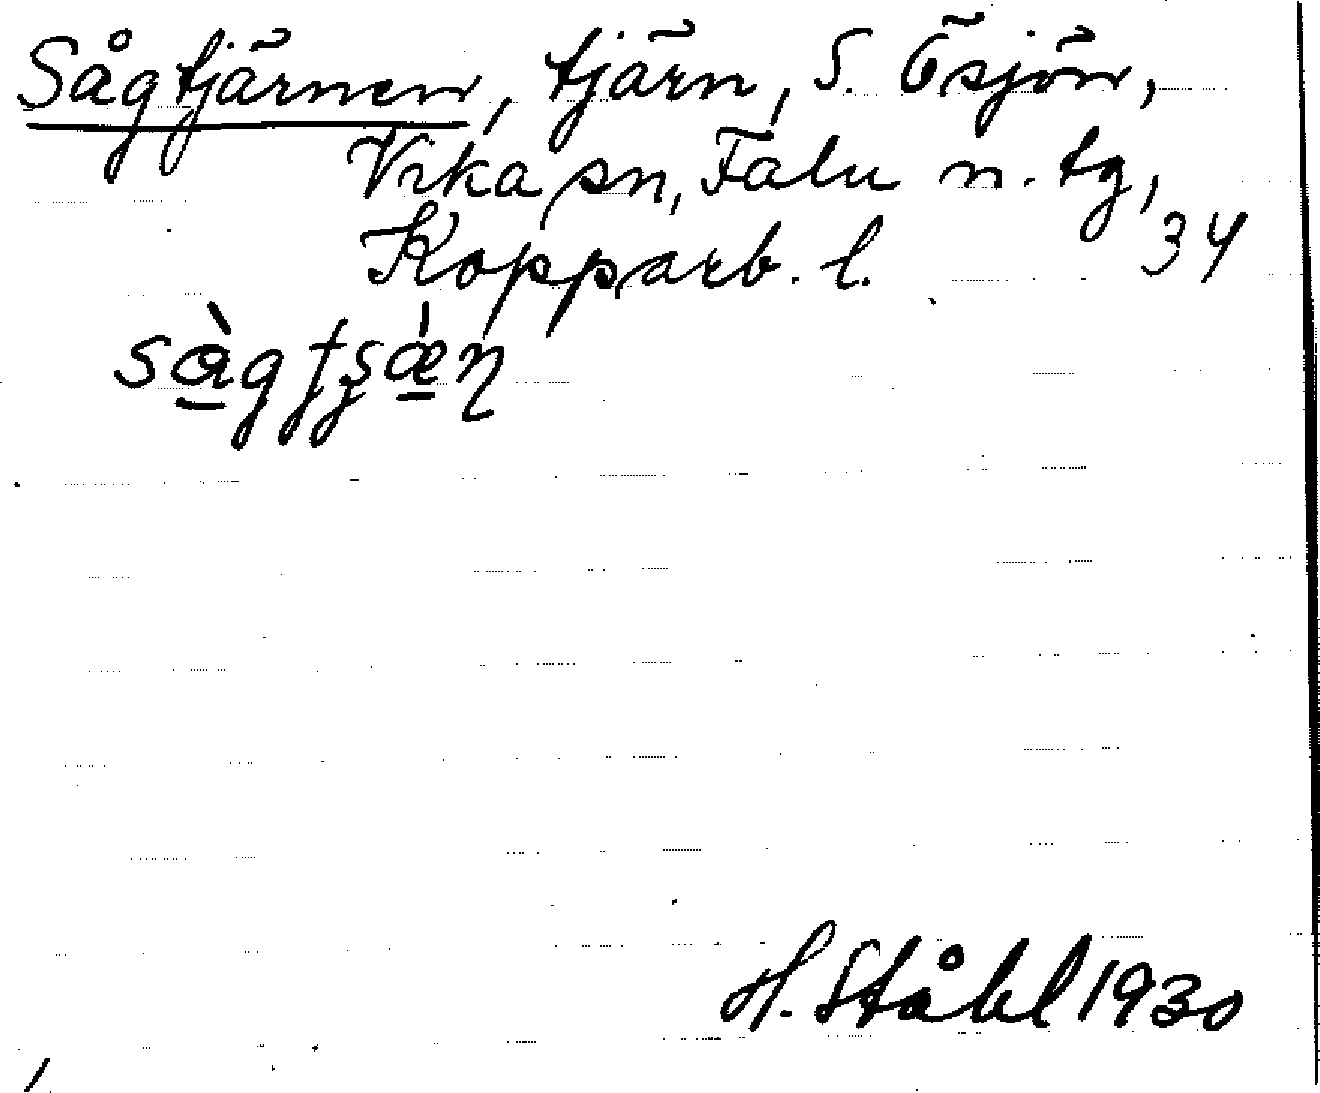 Sågtjärnen, tjärn, S. Ösjön,
Vika sn, Falu n. tg,
Kopparb. l. 34
H. Ståhl 1930